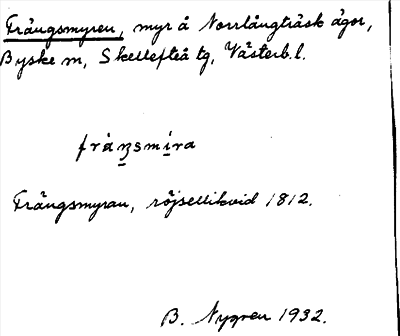 Trångsmyren, myr å Norrlångträsk ägor,
Byske sn, Skellefteå tg, Västerb. l.
Trångsmyran, röjsellikvid 1812.
B. Nygren 1932.